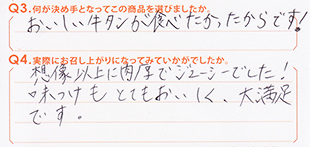 Q3.何が決め手となってこの商品を選びましたか。
おいしい牛タンが食べたかったからです!
Q4.実際にお召し上がりになってみていかがでしたか。
想像以上に肉厚でジューシーでした!
味つけもとてもおいしく、大満足
です。